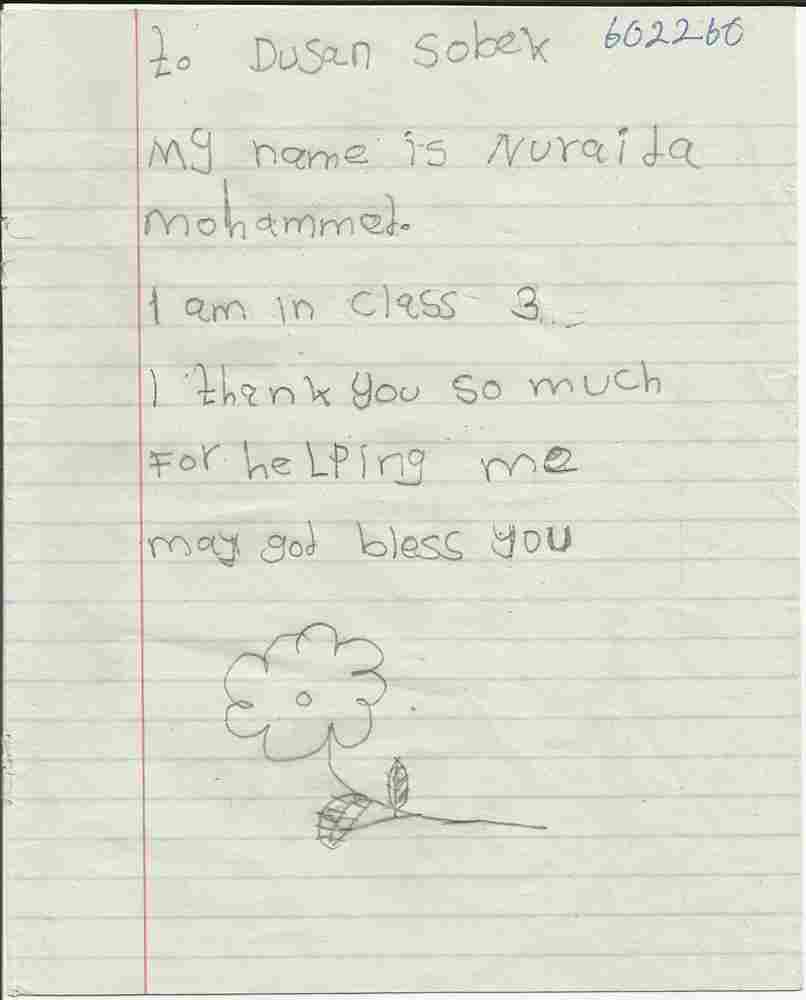 to Dusan Sobek 602260
My name is Nuraida
mohammed.
I am in class 3
I thank you so much
For heLPing me
may god bless you